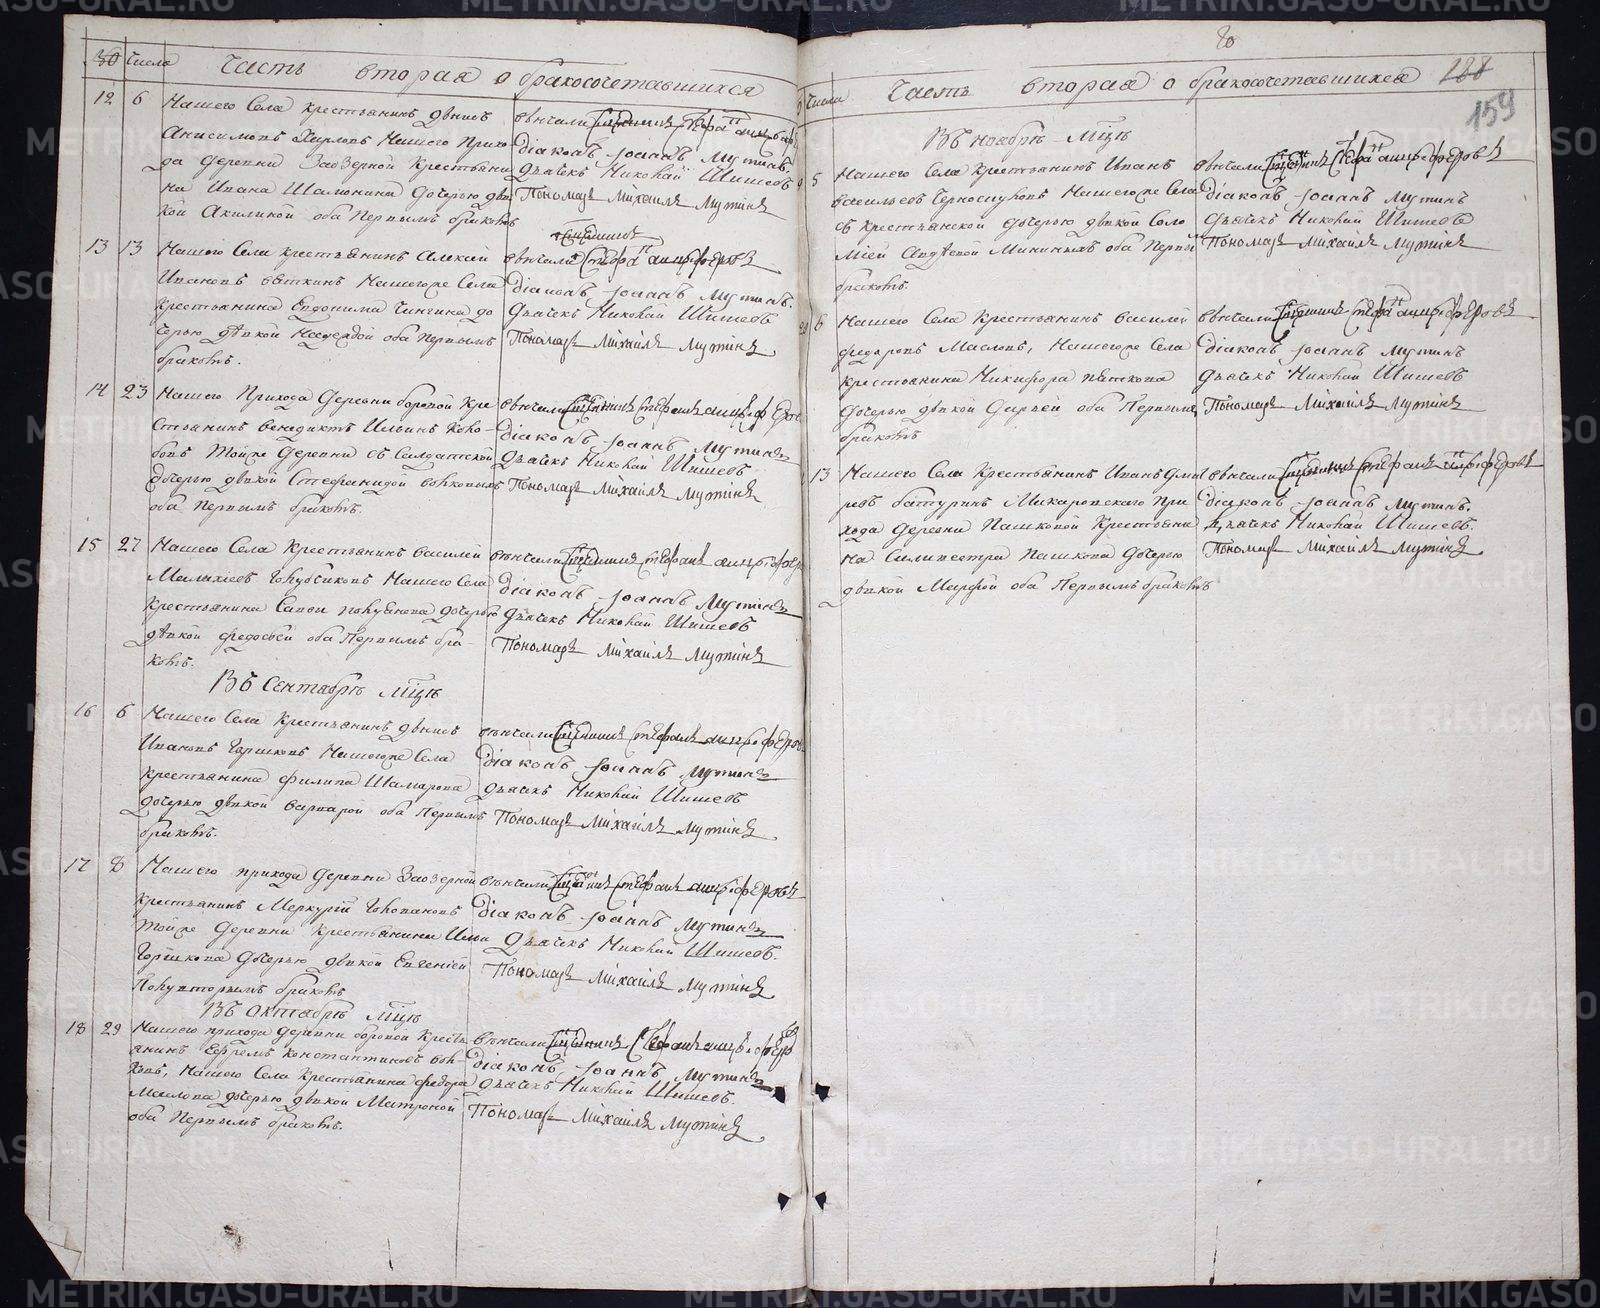 Числа
Часть вторая о бракосочетавшихся
12 6 Нашего Села крестьянинъ
Анисимовъ Нашего Прихо
да деревни Заозерной Крестьяни
на Ивана дочерью дѣв
кой Акилиной оба Первымъ бракомъ
вѣнчали Священникъ
Діаконъ Іоаннъ Мутинъ
Дьячекъ Николай Шишевъ
Пономарь Михаилъ Мутинъ
13 13 Нашего Села крестьянинъ Алексѣй
Ивановъ Вяткинъ Нашегоже Села
крестьянина Евдокима до
черью дѣвкой Надеждой оба Первымъ
бракомъ.
Священникъ
вѣнчали
Діаконъ Іоаннъ Мутинъ.
Дьячекъ Николай Шишевъ
Пономарь Михаилъ Мутинъ
14 23 Нашего Прихода Деревни боровой Кре
стьянинъ Венедиктъ Ильинъ
Тойже Деревни съ Солдатской
дочерью дѣвкой Стефанидой Волковыхъ
оба Первымъ бракомъ.
вѣнчали Священникъ Стефанъ
Діаконъ Іоаннъ Мутинъ
Дьячекъ Николай Шишевъ
Пономарь Михаилъ Мутинъ
15 27 Нашего Села Крестьянинъ Василій
Голубчиковъ Нашего Села
Крестьянина дочерью
дѣвкой Федосьей оба Первымъ бра-
комъ.
вѣнчали Священникъ Стефанъ
Діаконъ Іоаннъ Мутинъ
Дьячекъ Николай Шишевъ
Пономарь Михаилъ Мутинъ
Въ Сентябрѣ Мцѣ
16 6 Нашего Села Крестьянинъ
Ивановъ Горшковъ Нашегоже Села
Крестьянина Филипа
дочерью дѣвкой Варварой оба Первымъ
бракомъ.
вѣнчали Священникъ Стефанъ
Діаконъ Іоаннъ Мутинъ
Дьячекъ Николай Шишевъ
Пономарь Михаилъ Мутинъ
17 8 Нашего прихода Деревни Заозерной
крестьянинъ Меркурій
Тойже Деревни Крестьянина Ильи
Горшкова дочерью дѣвкой Евгеніей
Полувторымъ бракомъ
вѣнчали Священникъ Стефанъ
Діаконъ Іоаннъ Мутинъ
Дьячекъ Николай Шишевъ.
Пономарь Михаилъ Мутинъ
Въ Октябрѣ Мцѣ
18 29 Нашего прихода Деревни боровой Кресть
янинъ Ефремъ Константиновъ Вол-
ковъ, Нашего Села Крестьянина Федора
Маслова дочерью дѣвкой Матроной
оба Первымъ бракомъ.
вѣнчали Священникъ Стефанъ
Діаконъ, Іоаннъ Мутинъ
Дьячекъ Николай Шишевъ.
Пономарь Михаилъ Мутинъ
80
Числа
Часть вторая о бракосочетавшихся
188
159
Въ Ноябрѣ Мцѣ
5 Нашего Села Крестьянинъ Иванъ
Васильевъ Нашегоже Села
съ крестьянской дочерью дѣвкой Соло
міей Мининыхъ оба Первымъ
бракомъ.
вѣнчали Священникъ Стефанъ
Діаконъ Іоаннъ Мутинъ
Дьячекъ Николай Шишевъ
Пономарь Михаилъ Мутинъ
6 Нашего Села Крестьянинъ Василій
Федоровъ Масловъ, Нашегоже Села
крестьянина Никифора Пяткова
дочерью дѣвкой Дарьей оба Первымъ
бракомъ
вѣнчали Священникъ Стефанъ
Діаконъ Іоаннъ Мутинъ
Дьячекъ Николай Шишевъ
Пономарь Михаилъ Мутинъ
13 Нашего Села Крестьянинъ Иванъ Дмит
ревъ Батуринъ При
хода Деревни Пашковой Крестьяни
на Силивестра Пашкова дочерью
дѣвкой Марфой оба Первымъ бракомъ
вѣнчали Священникъ Стефанъ
Діаконъ Іоаннъ Мутинъ.
Дьячекъ Николай Шишевъ.
Пономарь Михаилъ Мутинъ
METRIKI.GASO-URAL.RU